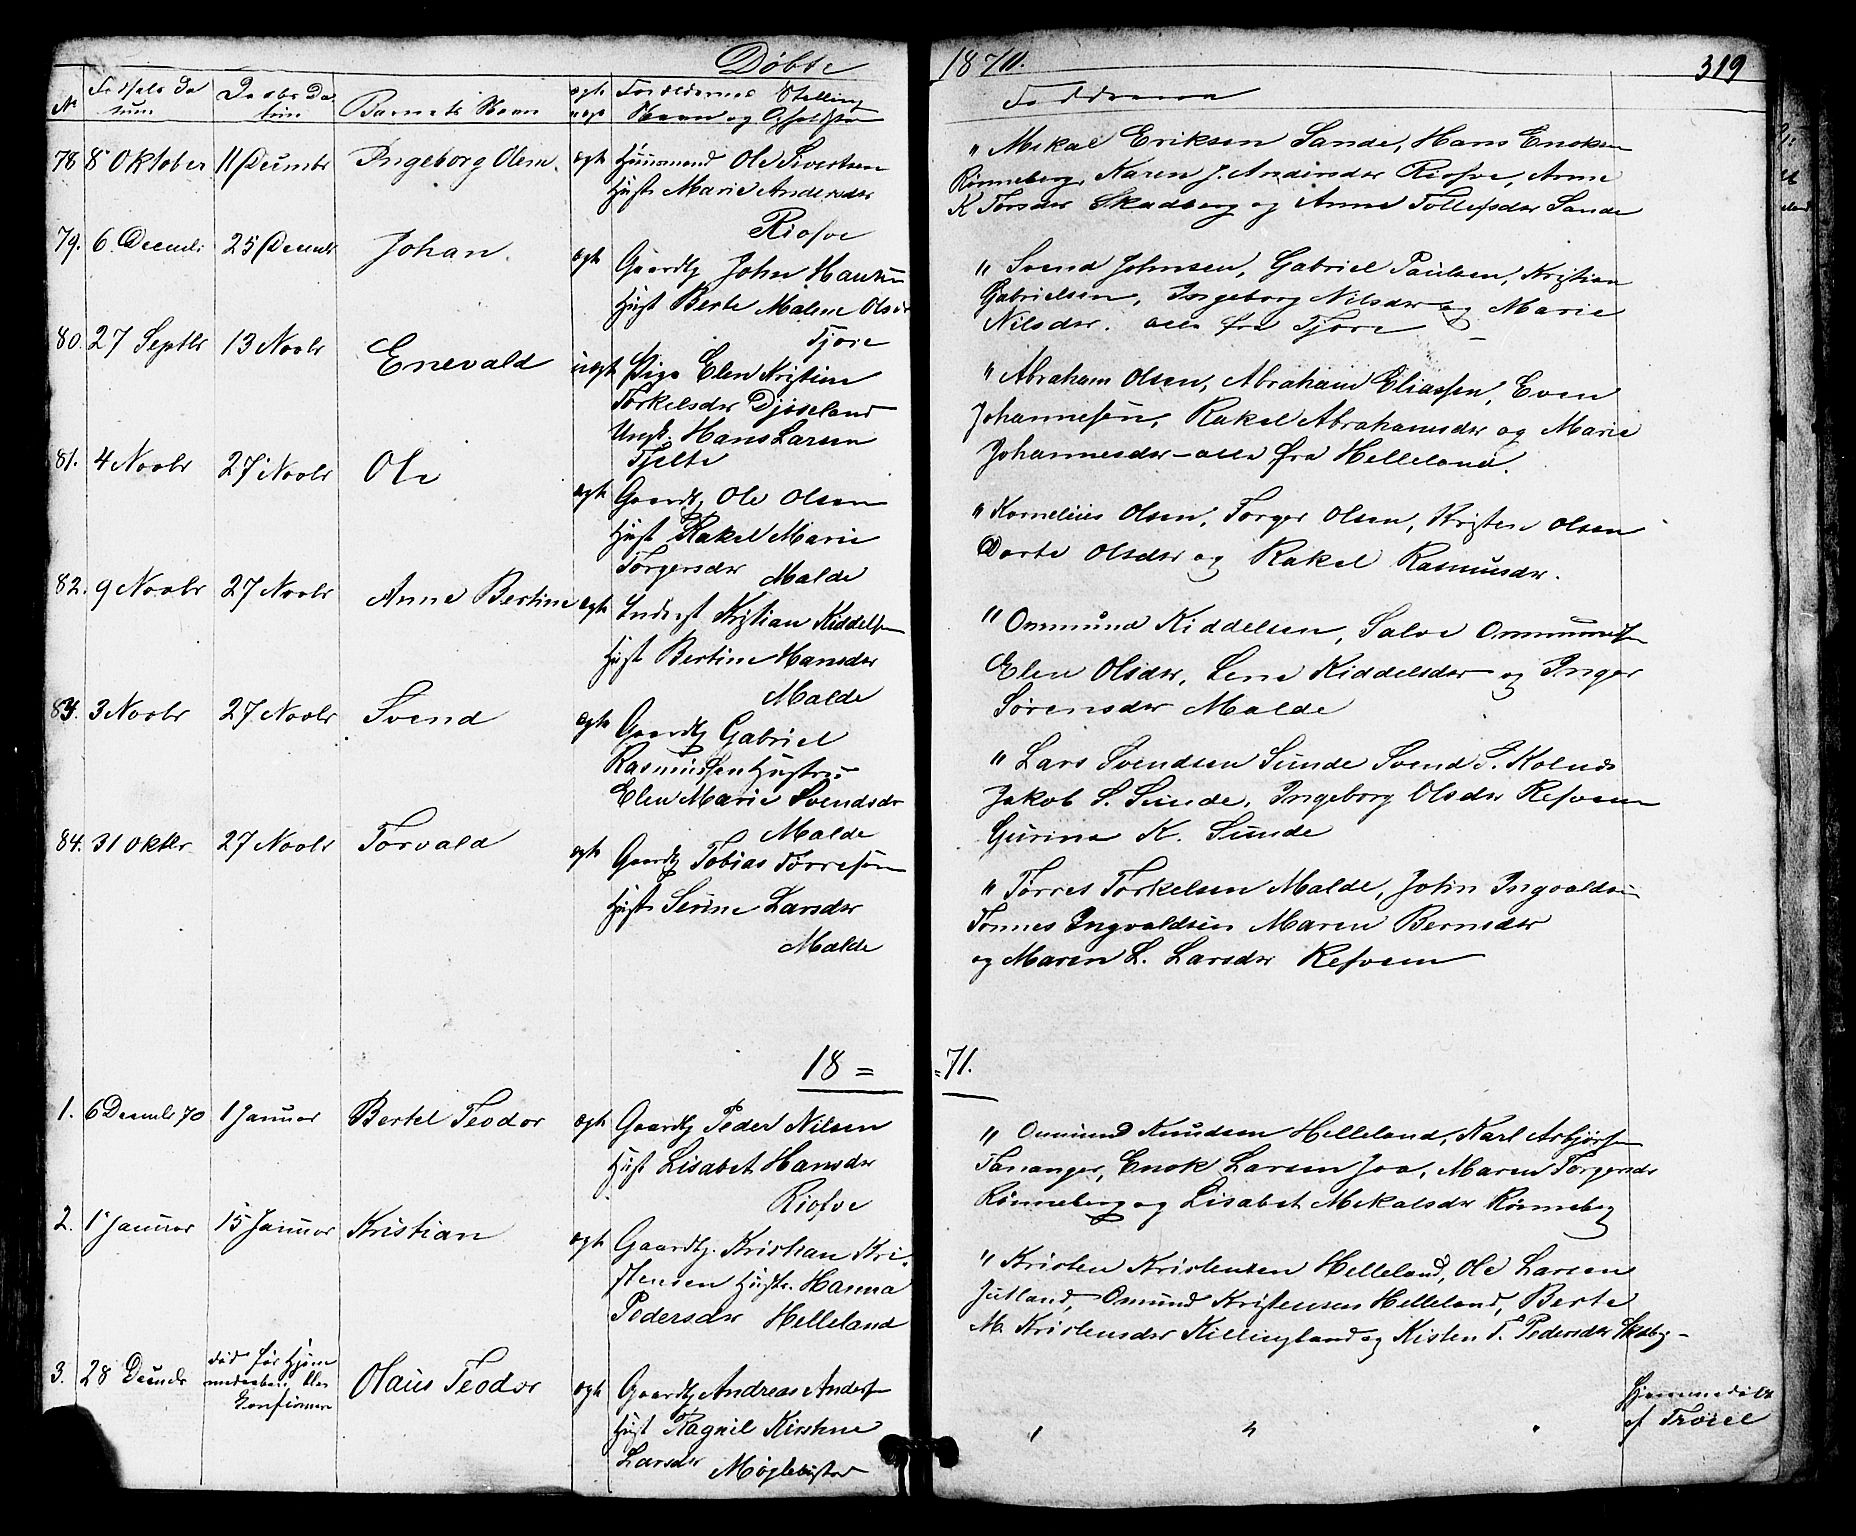 Døbte
1870.
319
No
Fødsels Da
tum
Daabs Da
tum
Barnets Navn
ægte
uægt
Forældrenes Stilling
Navn og Opholdsst
Faddrene
78 8 Oktober 11 Decembr Ingeborg Olene. ægte Huusmand Ole Sivertsen
Hust Marie Andersdtr
Riosve
" Mikal Eriksen Sande, Hans Enoksen
Rønneberg, Karen J. Andersdtr Riosve, Anne
K Torsdtr Skadberg og Anne Tollefsdtr Sande
79. 6. Decembr 25 Decembr Johan. ægte Gaardbr John Hansen
Hust Berte Malene Olsdr
Tjore
" Svend Johnsen, Gabriel Paulsen, Kristian
Gabrielsen, Ingeborg Nilsdtr og Marie
Nilsdtr. alle fra Tjore
80. 27 Septbr 13 Novbr Enevald uægt Pige Elen Kristine
Torkelsdtr Djøseland
Ungk. Hans Larsen
Tjelte
" Abraham Olsen, Abraham Eliassen, Even
Johannesen, Rakel Abrahamsdtr og Marie
Johannesdtr - alle fra Helleland.
81. 4 Novbr 27 Novbr Ole ægte Gaardbr Ole Olsen
Hust Rakel Marie
Torgersdtr Malde
" Kornelius Olsen, Torger Olsen, Kristen Olsen
Dorte Olsdtr og Rakel Rasmusdtr.
82. 9 Novbr 27 Novbr Anne Bertine ægte Inderst Kristian Kiddelsen
Hust Bertine Hansdtr
Malde
" Ommund Kiddelsen, Salve Ommundsen
Elen Olsdtr, Lene Kiddelsdtr og Inger
Sørensdtr Malde
83. 3 Novbr 27 Novbr Svend ægte Gaardbr Gabriel
Rasmussen Hustru
Elen Marie Svendsdr
Malde
" Lars Svendsen Sunde Svend S. Kolnes
Jakob S. Sunde, Ingeborg Olsdtr Refvem
Gurine K. Sunde
84. 31 Oktbr 27 Novbr Torvald ægte Gaardbr Tobias Tørresen
Hust Serine Larsdtr
Malde
" Tørres Torkelsen Malde, John Ingvaldsen
Tønnes Ingvaldsen Maren Berntsdtr
og Maren L. Larsdtr Refvem
18 =
= 71.
1. 6 Decembr 70 1 Januar Bertel Teodor ægte Gaardbr Peder Nilsen
Hust Lisabet Hansdtr
Riosve
" Ommund Knudsen Helleland, Karl Asbjørsen
Tananger, Enok Larsen Joa, Maren Torgersdtr
Rønneberg og Lisabet Mikalsdtr Rønneberg
2. 1 Januar 15 Januar Kristian ægte Gaardbr. Kristian Kri
stensen Hustr. Hanna
Pedersdtr Helleland
" Kristen Kristensen Helleland, Ole Larsen
Jutland, Omund Kristensen Helleland, Berte
M. Kristensdtr Killingland og Kisten T. Pedersdtr
3. 28 Decembr død før Hjem
medaaben blev
Konfirmere
Olaus Teodor ægte Gaardbr Andreas Andersen
Hust Ragnil Kirstine
Larsdtr
Hjemmedøbt
af